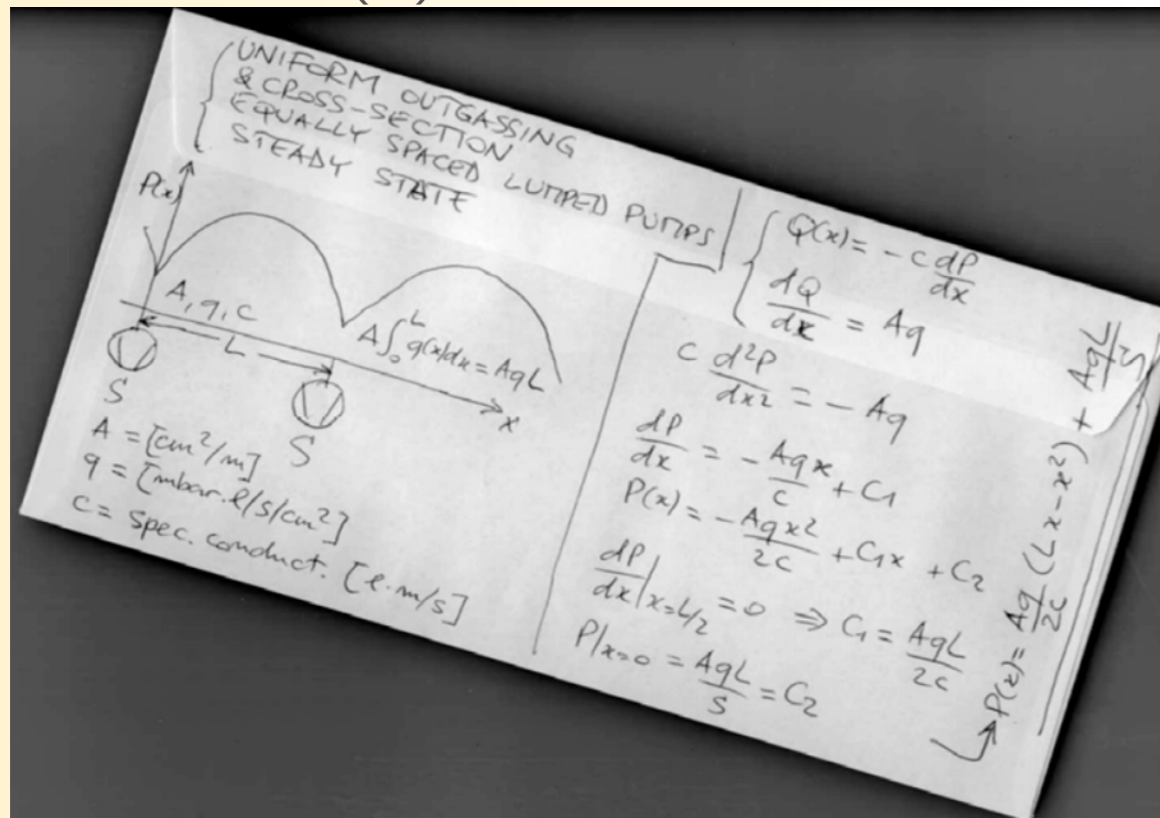 UNIFORM OUTGASSING
& CROSS-SECTION
EQUALLY SPACED LUMPED PUMPS
STEADY STATE
P(x)
A, q, c
L
A∫₀ᴸ q(x)dx = AqL
x
S
S
A = [cm²/m]
q = [mbar.l/s/cm²]
c = spec. conduct. [l·m/s]
Q(x) = -c dP/dx
dQ/dx = Aq
c d²P/dx² = - Aq
dP/dx = - Aqx/c + C₁
P(x) = - Aqx²/2c + C₁x + C₂
dP/dx|x=L/2 = 0 ⇒ C₁ = AqL/2c
P|x=0 = AqL/S = C₂
P(x) = Aq/2c (Lx-x²) + AqL/S